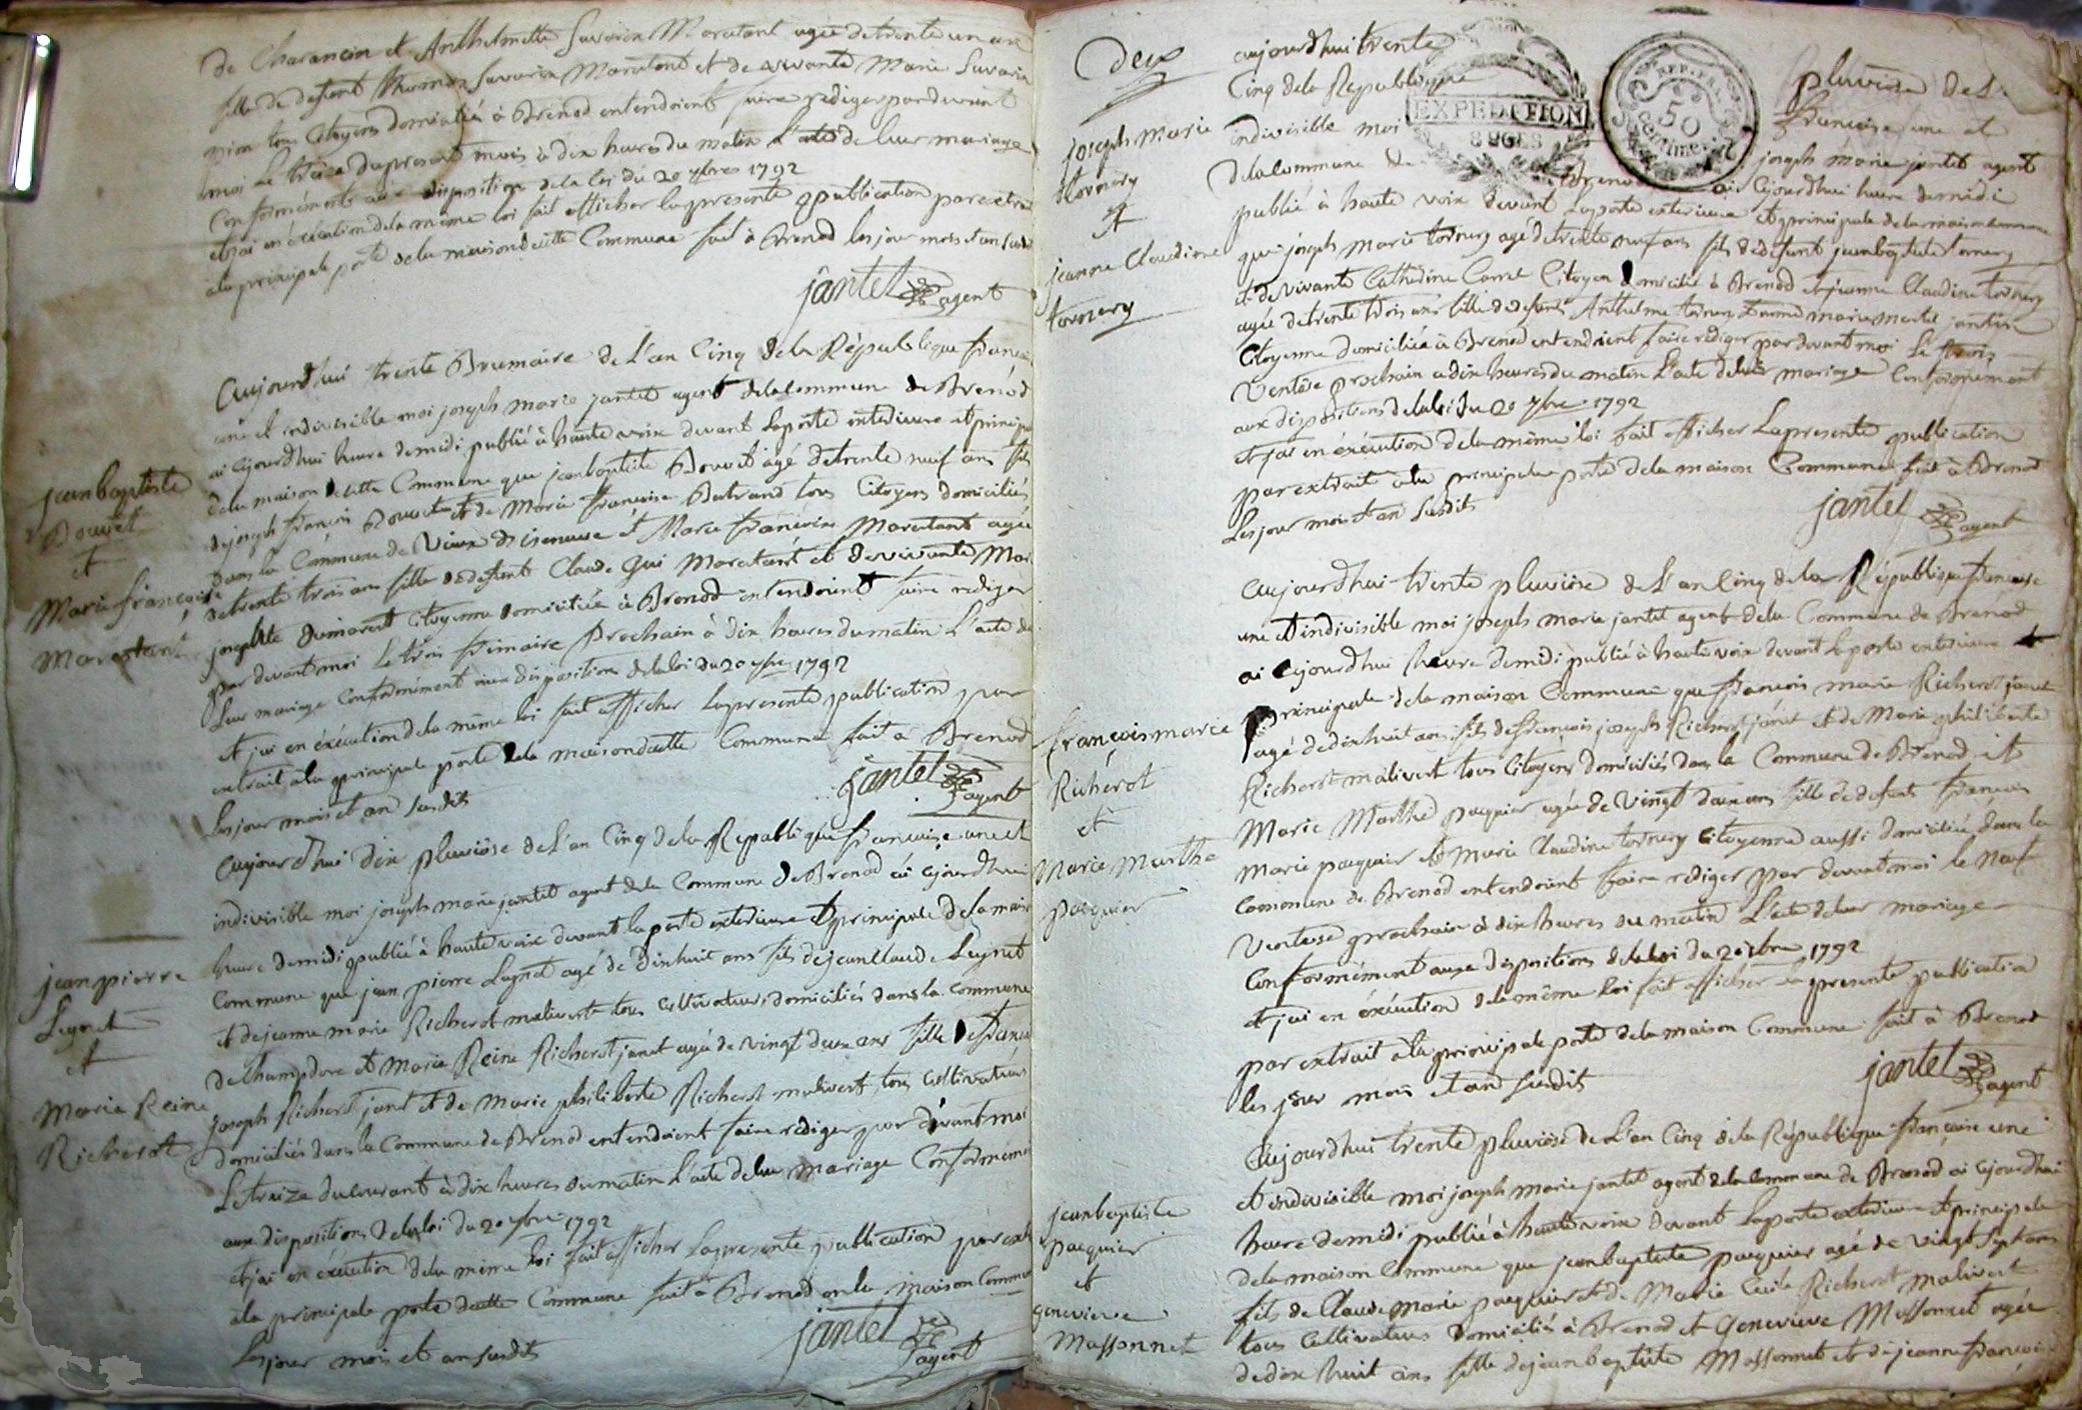 de Charancin et Anthelmette Savarin Maratant agée de trente un ans
fille de defunt Thomas Savarin Maratant et de vivante Marie Savarin
tous Citoyens domiciliés à Brenod entendoient faire rediger par devant
moi le treize du present mois à dix heures du matin L'acte de leur mariage
Conformément aux disposition de la loi du 20 7bre 1792
et j'ai en éxécution de la même loi fait afficher la presente publication par extrait
a la principale porte de la maison de cette Commune fait à Brenod les jour mois et an susdit
jantet agent
Aujourd'hui trente Brumaire de L'an Cinq de la République française
une et indivisible moi joseph marie jantet agent de la commune de Brenod
ai cejourdhui heure de midi publié à haute voix devant la porte exterieure et principale
de la maison de cette Commune que jean baptiste Bouvet agé de trente neuf ans fils
de joseph françois Bouvet et de Marie françoise Butrand tous Citoyens domiciliés
dans la Commune de Vieux d'isenave et Marie françoise Maratant agée
de trente trois ans fille de defunt Claude Gui Maratant et de vivante Marie
josephte Guimaret Citoyenne domiciliée à Brenod entendoient faire rediger
par devant moi le trois frimaire Prochain à dix heures du matin L'acte de
leur mariage conformément aux disposition de la loi du 20 7bre 1792
et j'ai en éxécution de la même loi fait afficher la presente publication par
extrait a la principale porte de la maison de cette Commune fait à Brenod
les jour mois et an susdits
jantet agent
jean baptiste
Bouvet
et
Marie françoise
Maratant
Aujourd'hui dix pluviôse de L'an Cinq de la République française une et
indivisible moi joseph marie jantet agent de la Commune de Brenod ai cejourdhui
heure de midi publié à haute voix devant la porte exterieure et principale de la maison
Commune que jean pierre Legnet agé de dixhuit ans fils de jean Claude Legnet
et de jeanne marie Richerot malivert tous cultivateurs domiciliés dans la commune
de Champdore et Marie Reine Richerot janet agée de vingt deux ans fille de françois
joseph Richerot janet et de Marie philiberte Richerot malivert tous cultivateurs
domiciliés dans la Commune de Brenod entendoient faire rediger par devant moi
le treize du courant à dix heures du matin L'acte de leur mariage Conformément
aux disposition de la loi du 20 7bre 1792
et j'ai en éxécution de la même loi fait afficher la presente publication par extrait
a la principale porte de cette Commune fait à Brenod en la maison Commune
les jour mois et an susdits
jantet agent
jean pierre
Legnet
et
Marie Reine
Richerot
Deux
aujourd'hui trente pluviôse de L'
Cinq de la Republique française une et
indivisible moi joseph marie jantet agent
de la commune de Brenod ai cejourdhui heure de midi
publié à haute voix devant la porte exterieure et principale de la maison commune
que joseph marie tornery agé de trente neuf ans fils de defunt jean baptiste tornery
et de vivante Catherine Carrel Citoyen domicilié à Brenod et jeanne Claudine tornery
agée de trente trois ans fille de defunts Anthelme tornery et marie martel jantet
Citoyenne domiciliée à Brenod entendoient faire rediger par devant moi le trois
Ventôse prochain a dix heures du matin L'acte de leur mariage Conformément
aux dispositions de la loi du 20 7bre 1792
et j'ai en éxécution de la même loi fait afficher la presente publication
par extrait a la principale porte de la maison Commune fait à Brenod
les jour mois et an susdits
jantet agent
EXPEDITION
REP. FRA.
50
centimes
joseph marie
tornery
et
jeanne Claudine
tornery
aujourd'hui trente pluviôse de L'an Cinq de la République française
une et indivisible moi joseph marie jantet agent de la Commune de Brenod
ai cejourdhui heure de midi publié à haute voix devant la porte exterieure et
Principale de la maison Commune que françois marie Richerot janet
agé de dixhuit ans fils de françois joseph Richerot janet et de Marie philiberte
Richerot malivert tous Citoyens domiciliés dans la Commune de Brenod et
Marie Marthe paquier agée de Vingt deux ans fille de defunt françois
marie paquier et Marie Claudine tornery Citoyenne aussi domiciliée dans la
Commune de Brenod entendoient faire rediger par devant moi le neuf
Ventose prochain à dix heures du matin L'acte de leur mariage
Conformément aux dispositions de la loi du 20 7bre 1792
et j'ai en éxécution de la même loi fait afficher la presente publication
par extrait a la principale porte de la maison Commune fait à Brenod
les jour mois et an susdits
jantet agent
françois marie
Richerot
et
Marie Marthe
paquier
Aujourd'hui trente pluviôse de L'an Cinq de la République française une
et indivisible moi joseph marie jantet agent de la Commune de Brenod ai cejourdhui
heure de midi publié à haute voix devant la porte exterieure et principale
de la maison Commune que jean baptiste paquier agé de vingt sept ans
fils de Claude Marie paquier et de Marie Cecile Richerot malivert
tous cultivateurs domiciliés à Brenod et Genevieve Massonnet agée
de dix huit ans fille de jean baptiste Massonnet et de jeanne françoise
jean baptiste
paquier
et
genevieve
Massonnet